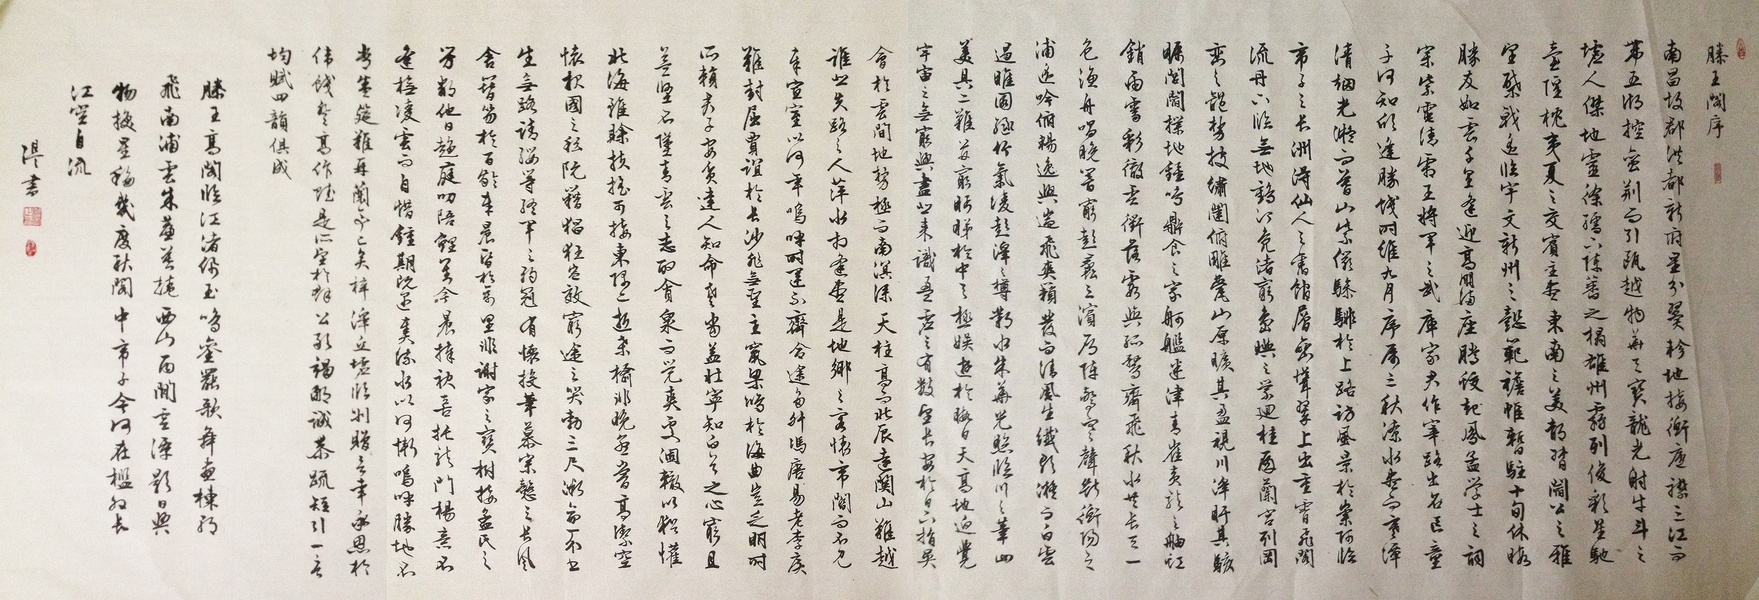 滕王閣序
南昌故郡洪都新府星分翼軫地接衡廬襟三江而
帶五湖控蠻荊而引甌越物華天寶龍光射牛斗之
墟人傑地靈徐孺下陳蕃之榻雄州霧列俊彩星馳
臺隍枕夷夏之交賓主盡東南之美都督閻公之雅
望棨戟遙臨宇文新州之懿範襜帷暫駐十旬休暇
勝友如雲千里逢迎高朋滿座騰蛟起鳳孟學士之詞
宗紫電清霜王將軍之武庫家君作宰路出名區童
子何知躬逢勝餞時維九月序屬三秋潦水盡而寒潭
清煙光凝而暮山紫儼驂騑於上路訪風景於崇阿臨
帝子之長洲得仙人之舊館層巒聳翠上出重霄飛閣
流丹下臨無地鶴汀鳧渚窮島嶼之縈迴桂殿蘭宮列岡
巒之體勢披繡闥俯雕甍山原曠其盈視川澤盱其駭
矚閭閻撲地鐘鳴鼎食之家舸艦迷津青雀黃龍之舳虹
銷雨霽彩徹雲衢落霞與孤鶩齊飛秋水共長天一
色漁舟唱晚響窮彭蠡之濱雁陣驚寒聲斷衡陽之
浦遙吟俯暢逸興遄飛爽籟發而清風生纖歌凝而白雲
遏睢園綠竹氣凌彭澤之樽鄴水朱華光照臨川之筆四
美具二難并窮睇眄於中天極娛遊於暇日天高地迥覺
宇宙之無窮興盡悲來識盈虛之有數望長安於日下指吳
會於雲間地勢極而南溟深天柱高而北辰遠關山難越
誰悲失路之人萍水相逢盡是他鄉之客懷帝閽而不見
奉宣室以何年嗚呼時運不齊命途多舛馮唐易老李廣
難封屈賈誼於長沙非無聖主竄梁鴻於海曲豈乏明時
所賴君子安貧達人知命老當益壯寧知白首之心窮且
益堅不墜青雲之志酌貪泉而覺爽處涸轍以猶懽
北海雖賒扶搖可接東隅已逝桑榆非晚孟嘗高潔空
懷報國之情阮籍猖狂豈效窮途之哭勃三尺微命一介書
生無路請纓等終軍之弱冠有懷投筆慕宗愨之長風
舍簪笏於百齡奉晨昏於萬里非謝家之寶樹接孟氏之
芳鄰他日趨庭叨陪鯉對今晨捧袂喜托龍門楊意不
逢撫凌雲而自惜鍾期既遇奏流水以何慚嗚呼勝地不
常盛筵難再蘭亭已矣梓澤丘墟臨別贈言幸承恩於
偉餞登高作賦是所望於群公敢竭鄙誠恭疏短引一言
均賦四韻俱成
滕王高閣臨江渚佩玉鳴鑾罷歌舞畫棟朝
飛南浦雲朱簾暮捲西山雨閒雲潭影日悠
物換星移幾度秋閣中帝子今何在檻外長
江空自流
書